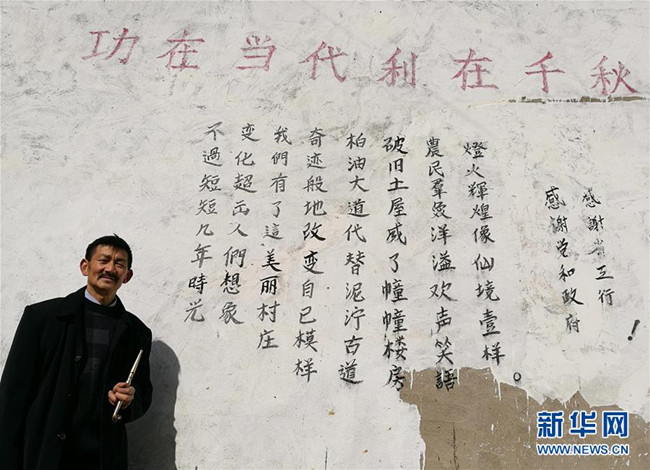 功在当代利在千秋
不過短短几年時光
变化超出人們想象
我們有了這美丽村庄
奇迹般地改变自己模样
柏油大道代替泥泞古道
破旧土屋成了幢幢楼房
農民羣衆洋溢欢声笑語
燈火輝煌像仙境壹样。
感謝党和政府
感謝省三行！
新华网
WWW.NEWS.CN